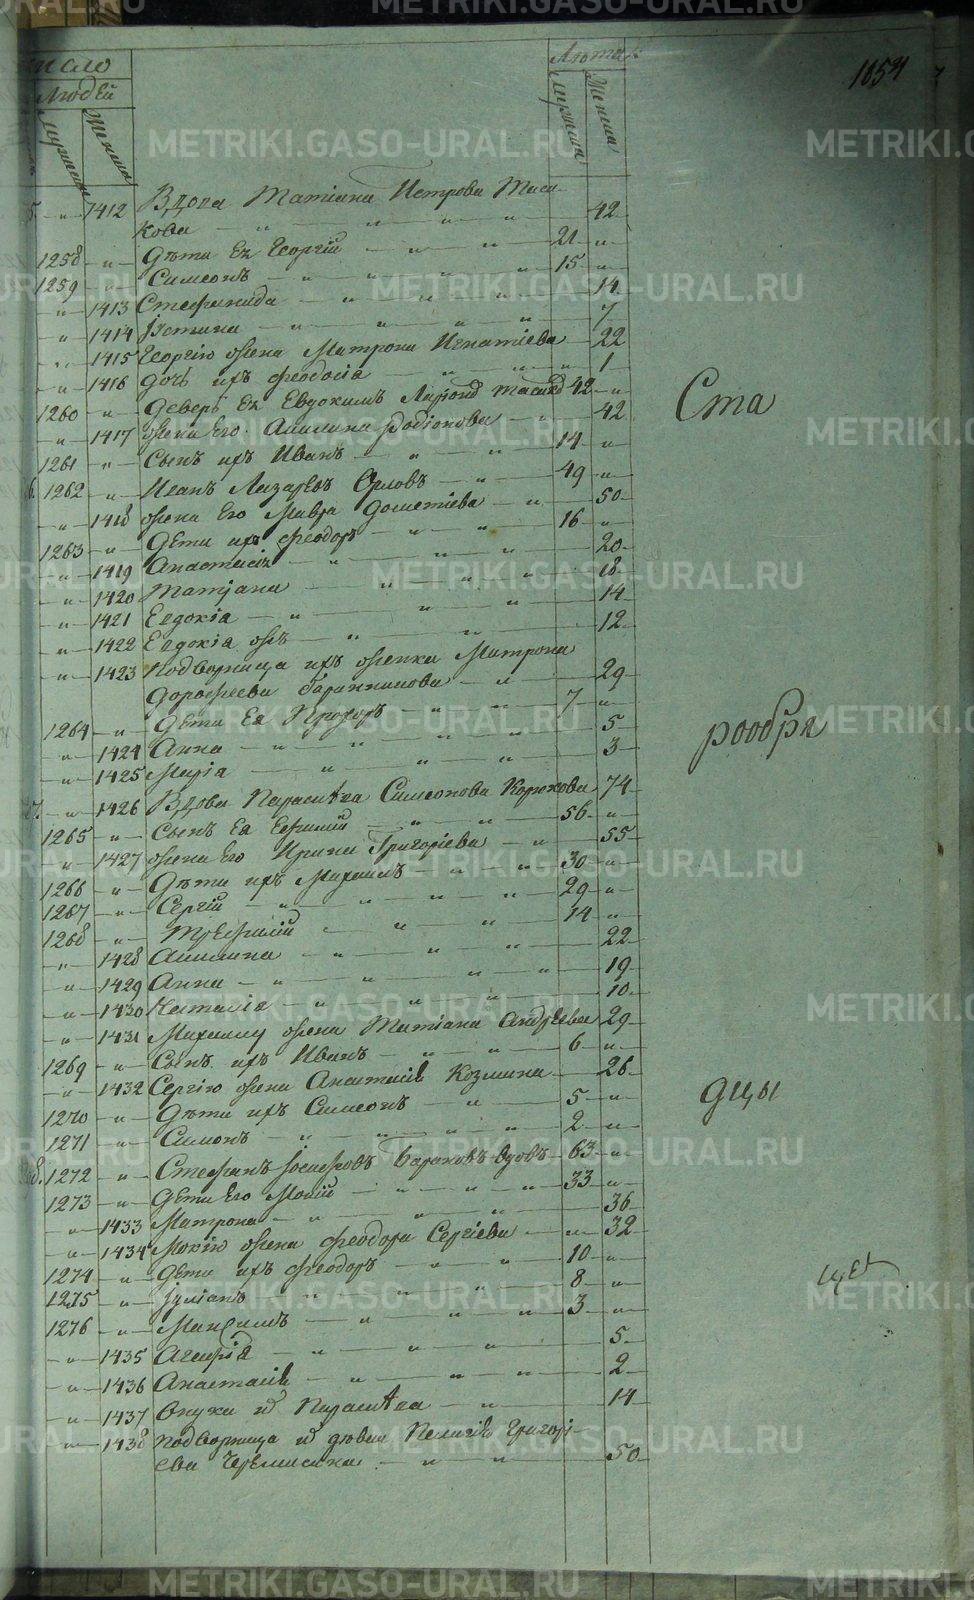 METRIKI.GASO-URAL.RU
число
Людей
Лѣта
мужеска
женска
Мужеска
Женска
1412 Вдова Татіана Петрова
кова 42
1258 Дѣти Ея Георгій 21
1259 Симеонъ 15
1413 Стефанида 14
1414 7
1415 Георгію жена Матрона Игнатіева 22
1416 дочь ихъ Феодосіа 1
1260 Деверь Ея Евдокимъ 42
1417 жена Его Акилина Родіонова 42
1261 Сынъ ихъ Иванъ 14
1262 Иванъ Лазаревъ Орловъ 49
1418 жена Его Мавра Дометіева 50
1263 Дѣти ихъ Феодоръ 16
1419 Анастасія 20
1420 Татіана 18
1421 Евдокіа 14
1422 Евдокіа ожъ 12
1423 Подворница ихъ женка Матрона
Дорофеева 29
1264 Дѣти Ея Прохоръ 7
1424 Анна 5
1425 Марія 3
1426 Вдова Параскева Симеонова 74
1265 Сынъ Ея Ефимій 56
1427 жена Его Ирина Григоріева 55
1266 Дѣти ихъ Михаилъ 30
1267 Сергій 29
1268 Трефилій 14
1428 Акилина 22
1429 Анна 19
1430 Наталіа 10
1431 Михаилу жена Татіана Андреева 29
1269 Сынъ ихъ Иванъ 6
1432 Сергію жена Анастасія Козмина 26
1270 Дѣти ихъ Симеонъ 5
1271 Симонъ 2
1272 Стефанъ Іосифовъ Барановъ вдовъ 63
1273 Дети Его Мокій 33
1433 Матрона 36
1434 Мокію жена Феодора Сергіева 32
1274 Дети ихъ Феодоръ 10
1275 Іуліанъ 8
1276 Максимъ 3
1435 Агафія 5
1436 Анастасія 2
1437 Внука и Параскева 14
1438 Подворница и дѣвка Пелагія Григорі-
ева 50
Ста
рообря
дцы